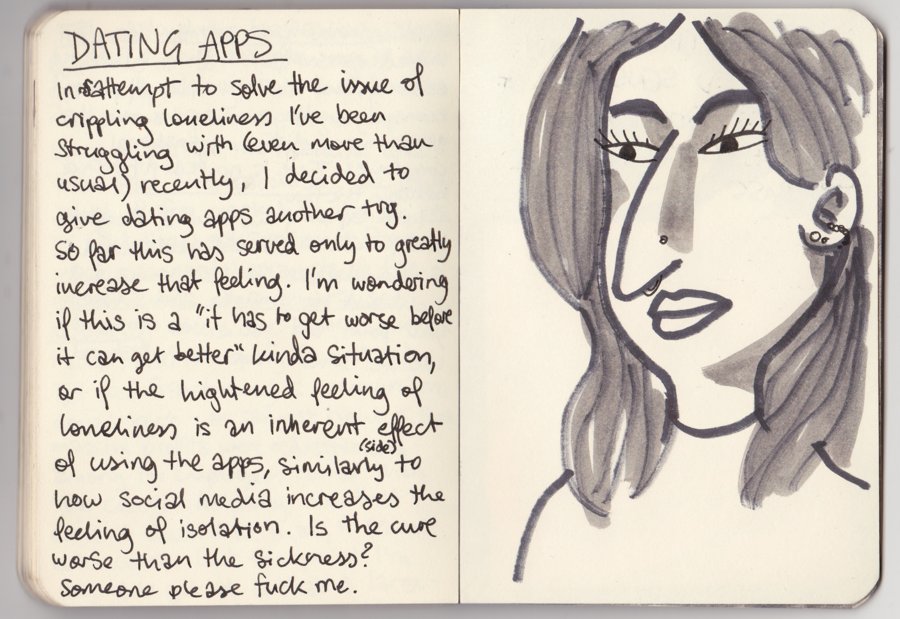 DATING APPS
In attempt to solve the issue of
crippling loneliness I've been
struggling with (even more than
usual) recently, I decided to
give dating apps another try.
So far this has served only to greatly
increase that feeling. I'm wondering
if this is a "it has to get worse before
it can get better" kinda situation,
or if the hightened feeling of
loneliness is an inherent effect
(side)
of using the apps, similarly to
how social media increases the
feeling of isolation. Is the cure
worse than the sickness?
Someone please fuck me.